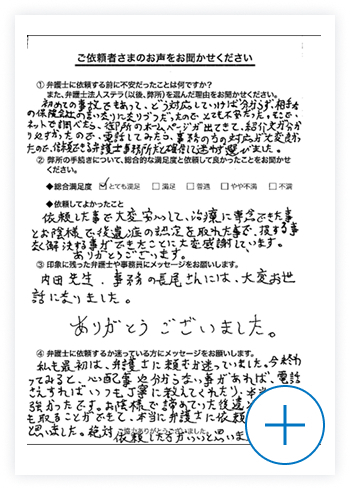 ご依頼者さまのお声をお聞かせください
① 弁護士に依頼する前に不安だったことは何ですか?
また、弁護士法人ステラ(以後、弊所)を選んだ理由をお聞かせください。
初めての事故でもあって、どう対応していけば分からず、相手
の保険会社のまいなりになりそうだったので とても不安だった。そこで、
ネットで調べたら、御所のホームページが出てきて、紹介文が分か
りやすかったので、電話してみたら、事務の方の対応が大変良か
ったので、信頼できる弁護士事務所だと確信し迷わず選びました。
② 弊所の手続きについて、総合的な満足度と依頼して良かったことをお聞かせ
ください。
◆総合満足度 ☑とても満足 □満足 □普通 □やや不満 □不満
◆依頼してよかったこと
依頼した事で大変安心して、治療に専念できた事
とお陰様で後遺症の認定を取れた事で、後する事
なく解決する事ができたことに大変感謝しています。
ありがとうございます。
③ 印象に残った弁護士や事務員にメッセージをお願いします。
内田先生、事務の長尾さんには、大変お世
話になりました。
ありがとうございました。
④ 弁護士に依頼するか迷っている方にメッセージをお願いします。
私も最初は、弁護士に頼むか迷っていました。今終わ
ってみると、心配事や分からない事があれば、電話
さえすればいつも丁寧に教えてくれたり、本当
強かったです。お陰様で諦めていた後遺
も取ることができて、本当に弁護士に依頼
と思いました。絶対
ご協力ありがとうございました
依頼した方がいいと思いま